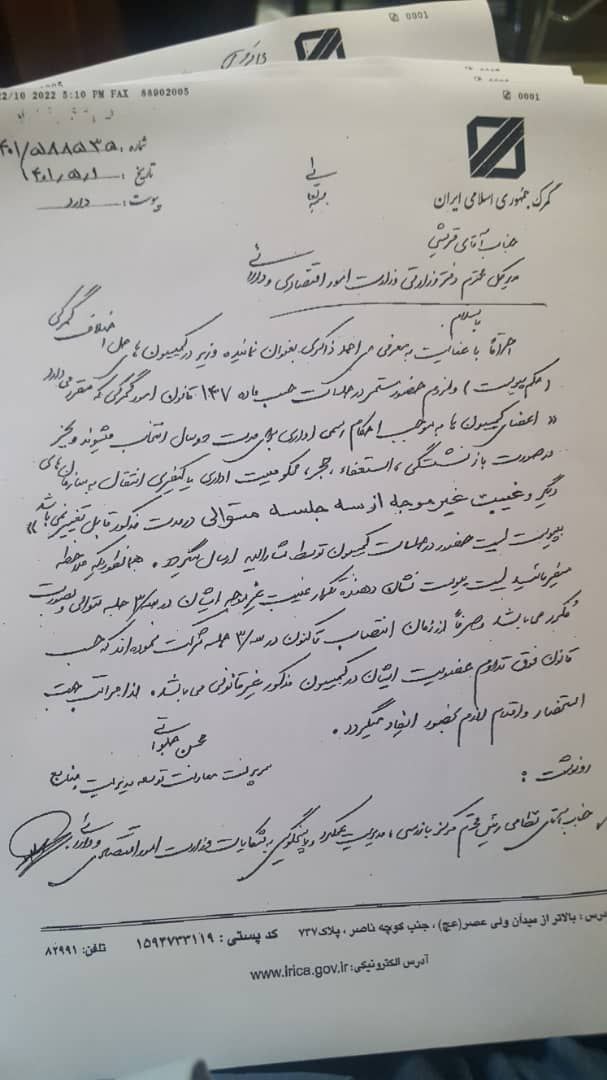 0001
22/10 2022 5:10 PM FAX 88902005
0001
شماره: ۴۰۱/۵۸۸۵۳۵
تاریخ: ۴۰۱/۵/۰۱
پیوست: دارد
گمرک جمهوری اسلامی ایران
جناب آقای قریشی
مدیرکل محترم دفتر وزارتی وزارت امور اقتصادی و دارائی
با سلام
احتراماً با عنایت به معرفی احمد ذاکری بعنوان نماینده وزیر در کمیسیون های حل اختلاف گمرکی
(حکم پیوست) و لزوم حضور مستمر در جلسات حسب ماده ۱۴۷ قانون امور گمرکی که مقرر می دارد
« اعضای کمیسیون ها به موجب احکام رسمی اداری برای مدت دو سال انتخاب میشوند و بجز
در صورت بازنشستگی، استعفاء، حجر، محکومیت اداری یا کیفری انتقال به سازمان های
دیگر و غیبت غیر موجه از سه جلسه متوالی در مدت مذکور قابل تغییر نمی باشد»
بپیوست لیست حضور در جلسات کمیسیون توسط مشارالیه ارسال میگردد. همانطور که ملاحظه
میفرمائید لیست پیوست نشان دهنده تکرار غیبت غیر موجه ایشان در سه/۳ جلسه متوالی و بصورت
مکرر می باشد و صرفاً از زمان انتصاب تاکنون در سه/۳ جلسه شرکت نموده اند که حسب
قانون فوق تداوم عضویت ایشان در کمیسیون مذکور غیر قانونی می باشد. لذا مراتب جهت
استحضار و اقدام لازم بحضور ایفاد میگردد.
محسن
سرپرست معاونت توسعه مدیریت و منابع
رونوشت:
جناب آقای نظامی رئیس محترم مرکز بازرسی، مدیریت عملکرد و پاسخگویی به شکایات وزارت امور اقتصادی و دارائی
آدرس: بالاتر از میدان ولی عصر(عج)، جنب کوچه ناصر، پلاک ۷۳۷ کد پستی: ۱۵۹۴۷۳۳۱۱۹ تلفن: ۸۲۹۹۱
آدرس الکترونیکی: www.Irica.gov.ir